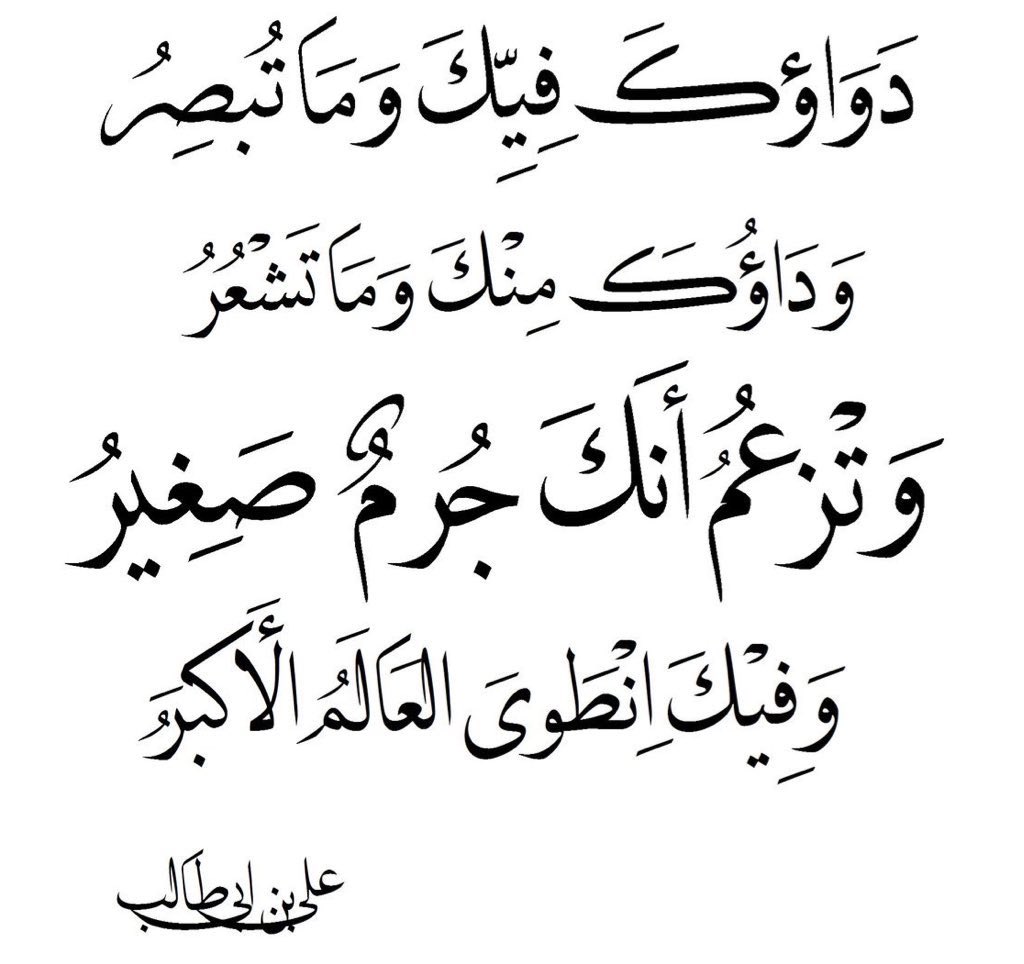 دَوَاؤكَ فِيّكَ وَمَا تُبصِرُ
وَدَاؤُكَ مِنْكَ وَمَا تَشْعُرُ
وَتْزعمُ أَنكَ جُرمٌ صَغِيرُ
وَفِيْكَ اِنْطَوىَ العَالَمُ الأَكبرَُ
علي بن ابي طالب